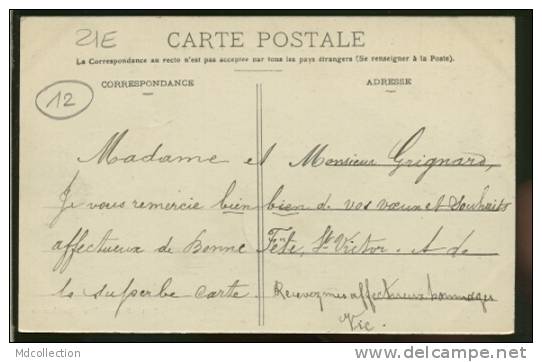 21E
CARTE POSTALE
La Correspondance au recto n'est pas acceptée par tous les pays étrangers (Se renseigner à la Poste).
CORRESPONDANCE
ADRESSE
12
Madame et Monsieur Grignard,
Je vous remercie bien bien de vos vœux et souhaits
affectueux de Bonne Fête, St Victor. Et de
la superbe carte. Recevez mes affectueux hommages
Vic.
MDCollection
www.delcampe.net